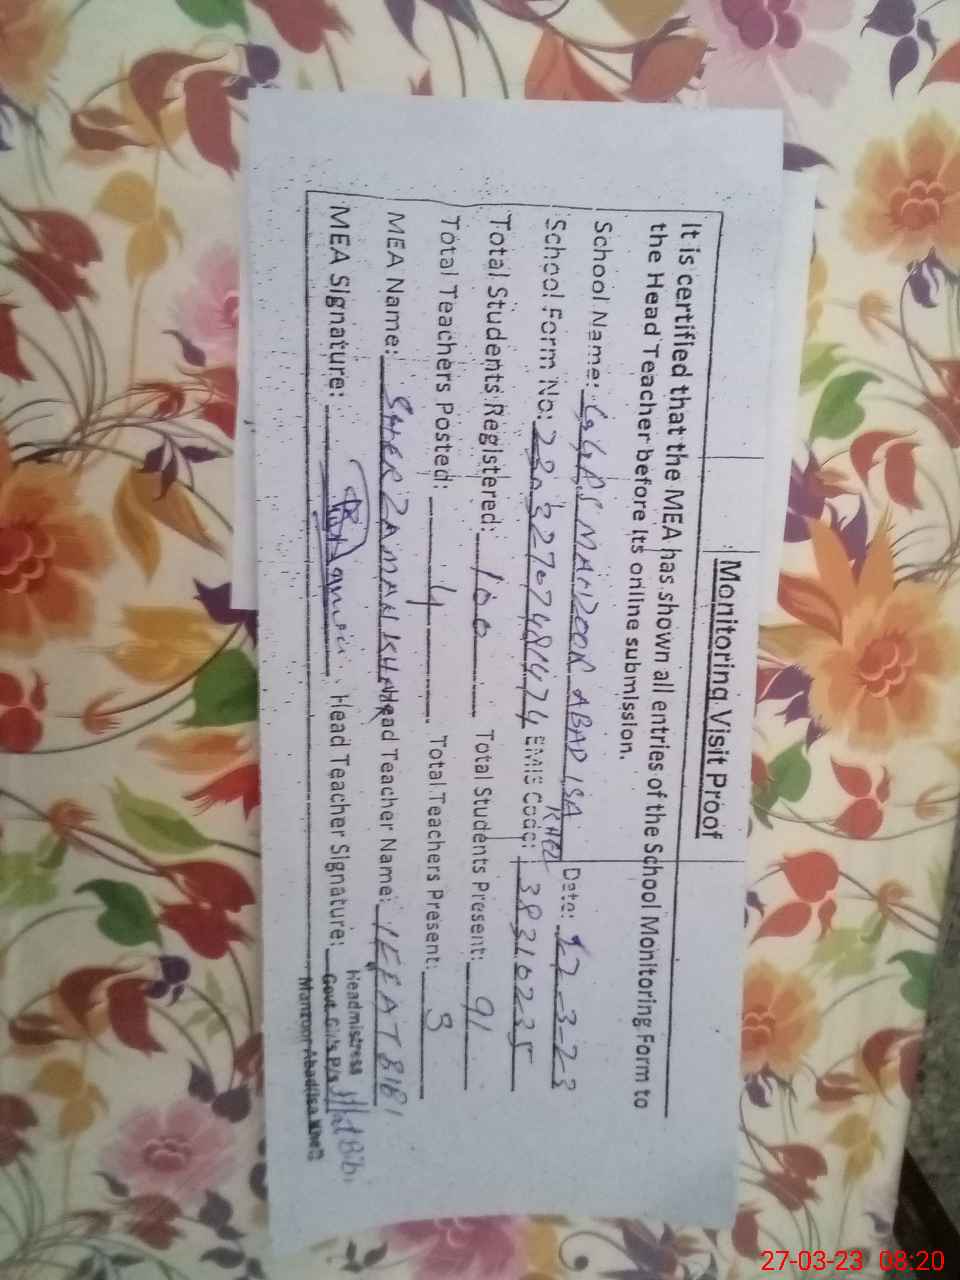 Monitoring Visit Proof
It is certified that the MEA has shown all entries of the School Monitoring Form to
the Head Teacher before its online submission.
School Name: GGPS MANZOOR ABAD ISA KHEL Date: 27-3-23
School Form No: 23032707481474 EMIS Code: 38310235
Total Students Registered: 100 Total Students Present: 91
Total Teachers Posted: 4 Total Teachers Present: 3
MEA Name: SHER ZAMAN KHAN Head Teacher Name: IFFAT BIBI
MEA Signature: Head Teacher Signature: Iffat Bibi
Headmistress
Govt. Girls P/S
Manzoor Abad Isa Khel
27-03-23 08:20